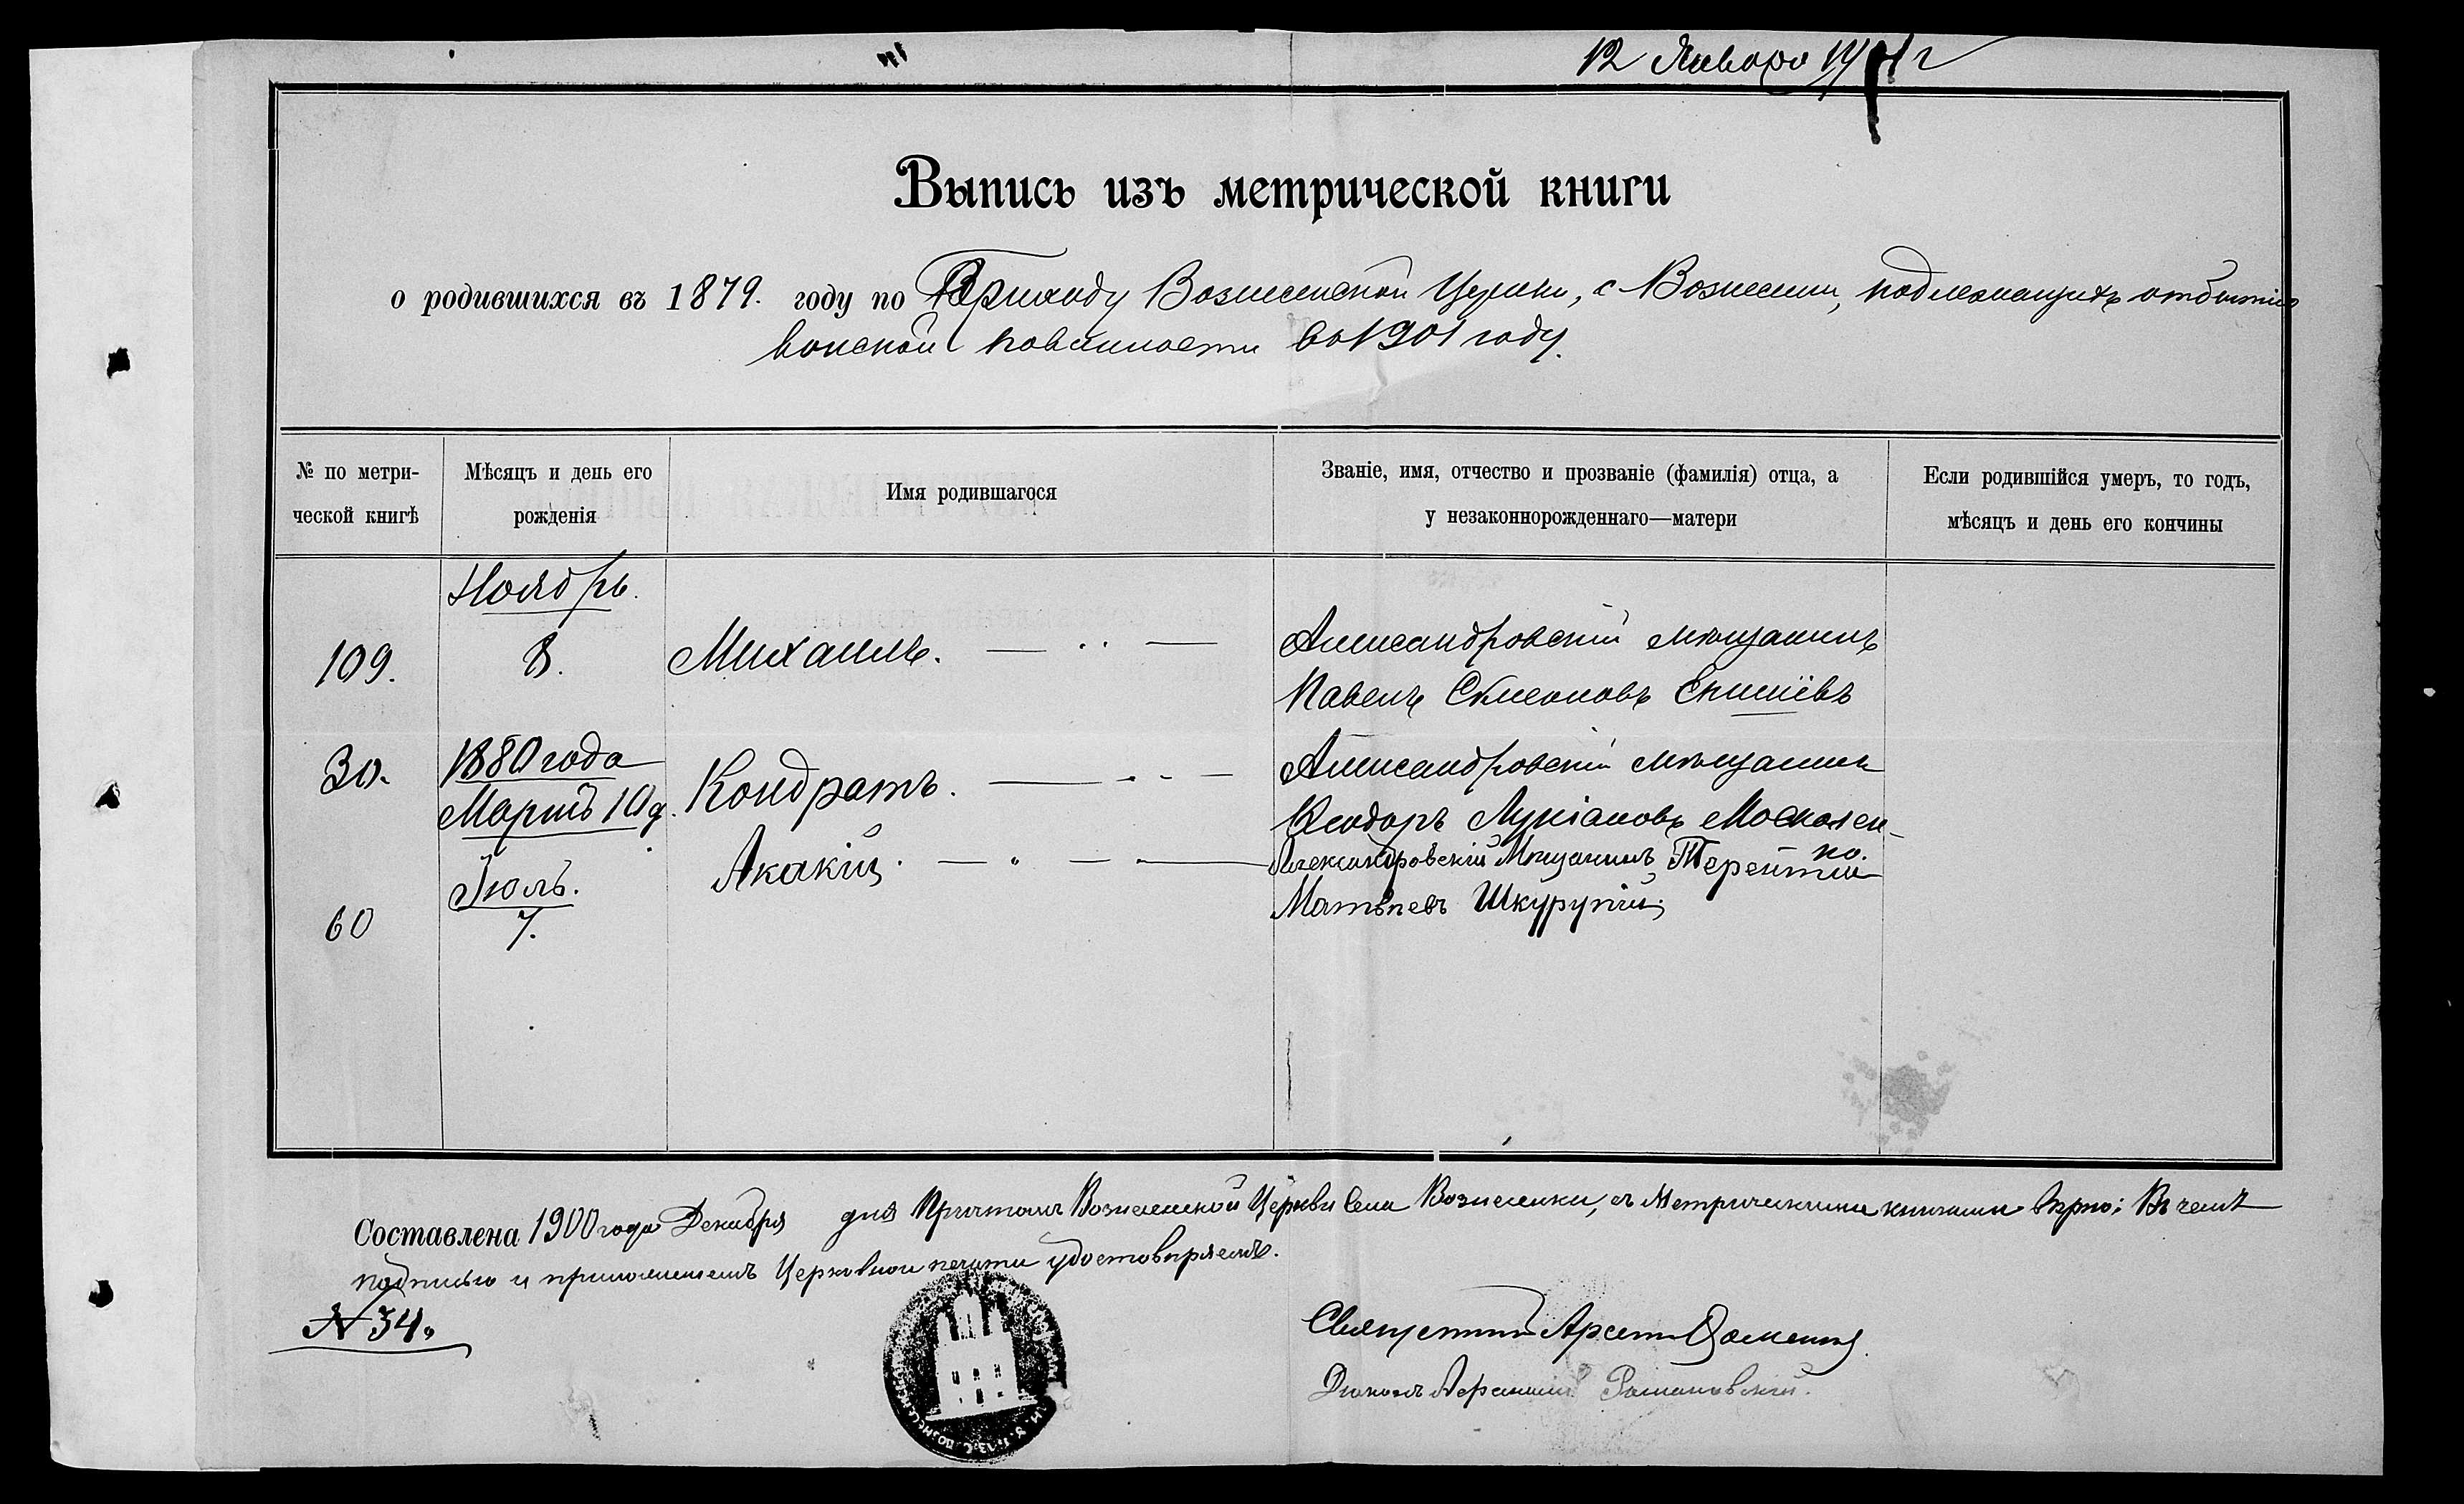 12 Января
Выпись изъ метрической книги
о родившихся въ 1879. году по Приходу Вознесенской Церкви, с Вознесенки, подлежащихъ отбытию
воиской повинности въ 1901 году.
№ по метри-
ческой книгѣ
Мѣсяцъ и день его
рожденія
Имя родившагося
Званіе, имя, отчество и прозваніе (фамилія) отца, а
у незаконнорожденнаго—матери
Если родившійся умеръ, то годъ,
мѣсяцъ и день его кончины
Ноябрь.
109. 8. Михаилъ. Александровскій мѣщанинъ
Павелъ Симеоновъ
30. 1880 года Кондратъ. Александровскій мѣщанинъ
Мартъ 10 д. Ѳеодоръ Лукіановъ Москален-
ко.
Іюль. Акакій. Александровскій Мѣщанинъ Терентій
60 7. Матѳѣевъ Шкурупій;
Составлена 1900 года Декабря дня Причтомъ Вознесенской Церкви села Вознесенки, съ Метрическими книгами вѣрно; Въ чемъ
подписью и приложеніемъ Церковной печати удостовѣряемъ.
№ 34.
Священникъ Арсеній
Діаконъ Романовскій.